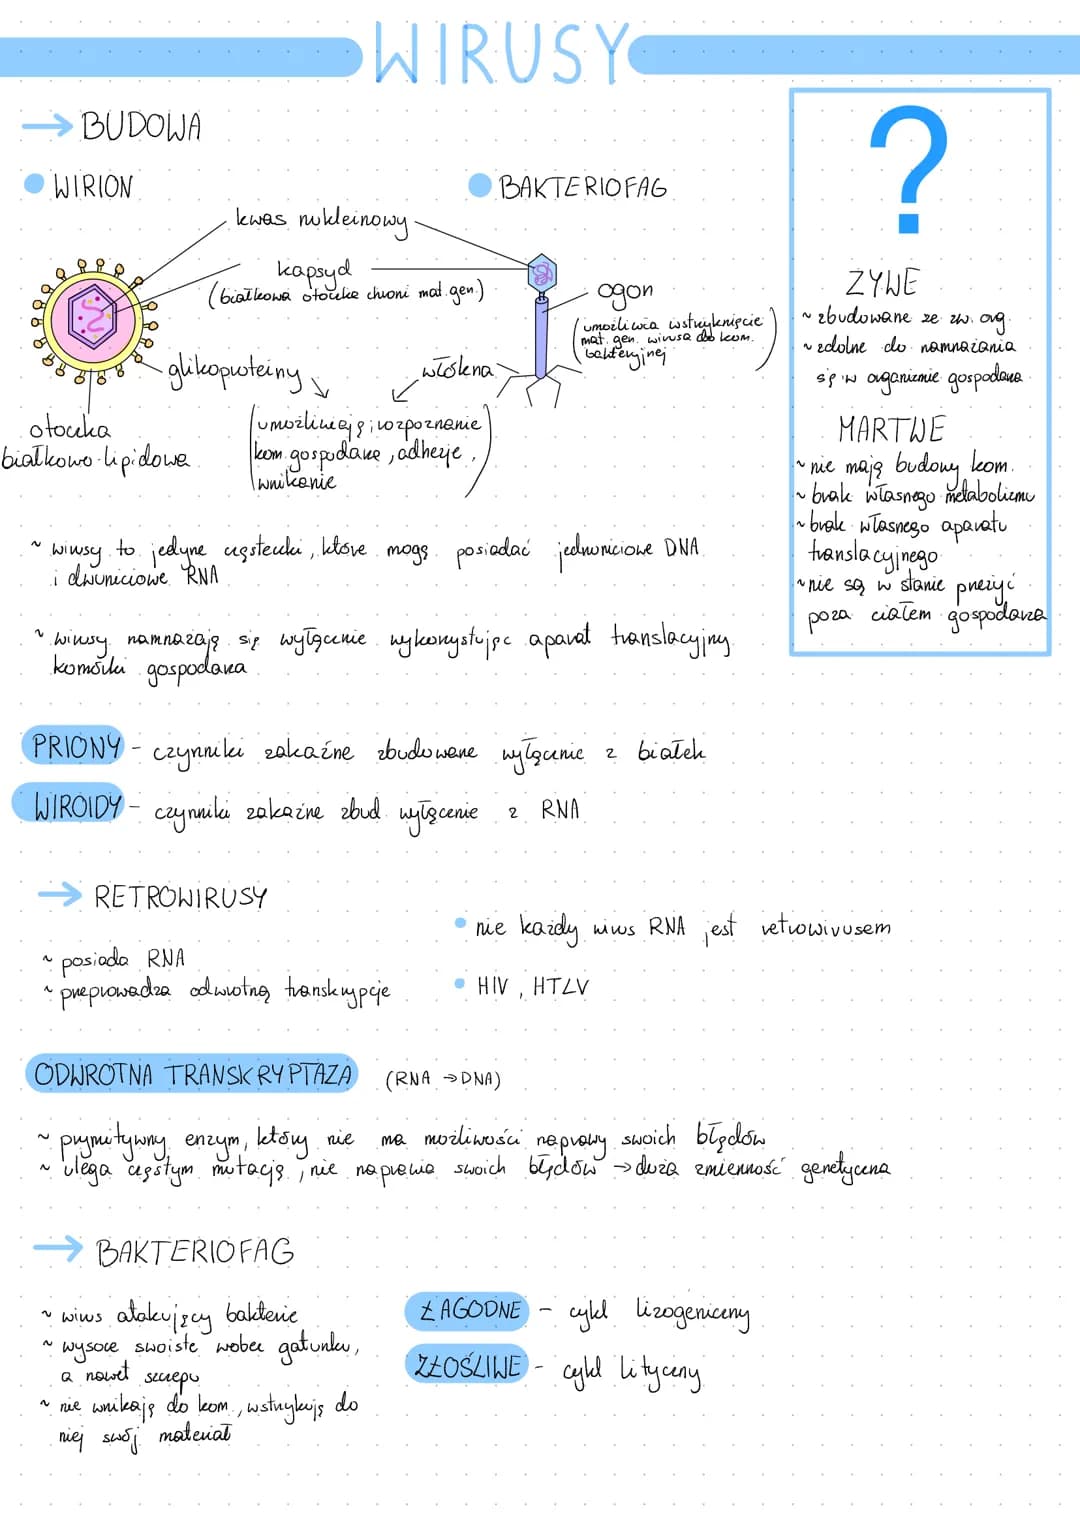 WIRUSY
→ BUDOWA
• WIRION
• BAKTERIOFAG
kwas nukleinowy
kapsyd
(białkowa otoczka chroni mat. gen.)
ogon
(umożliwia wstrzyknięcie
mat. gen. wirusa do kom.
bakteryjnej)
glikoproteiny
włókna
(umożliwiają rozpoznanie
kom. gospodarza, adhezję,
wnikanie)
otoczka
białkowo-lipidowa
~ wirusy to jedyne cząsteczki, które mogą posiadać jednoniciowe DNA
i dwuniciowe RNA
~ wirusy namnażają się wyłącznie wykorzystując aparat translacyjny
komórki gospodarza
?
ŻYWE
~ zbudowane ze zw. org.
~ zdolne do namnażania
się w organizmie gospodarza
MARTWE
~ nie mają budowy kom.
~ brak własnego metabolizmu
~ brak własnego aparatu
translacyjnego
~ nie są w stanie przeżyć
poza ciałem gospodarza
PRIONY - czynniki zakaźne zbudowane wyłącznie z białek
WIROIDY - czynniki zakaźne zbud. wyłącznie z RNA
→ RETROWIRUSY
~ posiada RNA
~ przeprowadza odwrotną transkrypcję
• nie każdy wirus RNA jest retrowirusem
• HIV, HTLV
ODWROTNA TRANSKRYPTAZA (RNA → DNA)
~ prymitywny enzym, który nie ma możliwości naprawy swoich błędów
~ ulega częstym mutacją, nie naprawia swoich błędów → duża zmienność genetyczna
→ BAKTERIOFAG
~ wirus atakujący bakterie
~ wysoce swoiste wobec gatunku,
a nawet szczepu
~ nie wnikają do kom., wstrzykują do
niej swój materiał
ŁAGODNE - cykl lizogeniczny
ZŁOŚLIWE - cykl lityczny